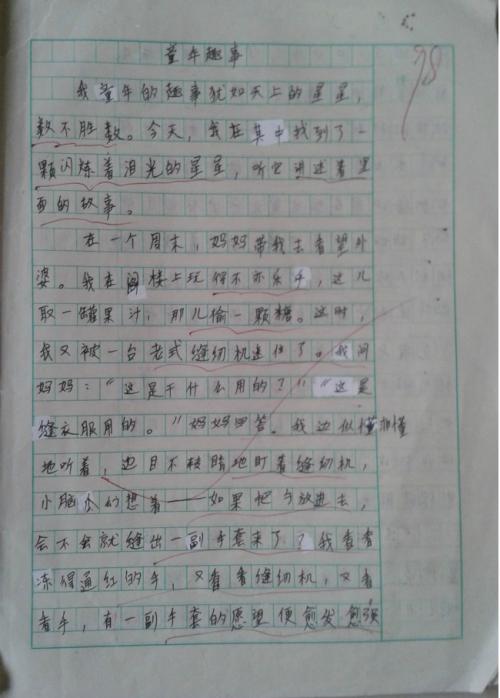 童年趣事
我童年的趣事犹如天上的星星，
数不胜数。今天，我在其中找到了一
颗闪烁着泪光的星星，听它讲述着里
面的故事。
在一个周末，妈妈带我去看望外
婆。我在阁楼上玩得不亦乐乎，这儿
取一罐果汁，那儿偷一颗糖。这时，
我又被一台老式缝纫机迷住了。我问
妈妈：“这是干什么用的？”“这是
缝衣服用的。”妈妈回答。我边似懂非懂
地听着，边目不转睛地盯着缝纫机，
小脑 们想着——如果把手放进去，
会不会就缝出一副手套来了？我看看
冻得通红的手，又看看缝纫机，又看
看手，有一副手套的愿望便愈发愈强
98